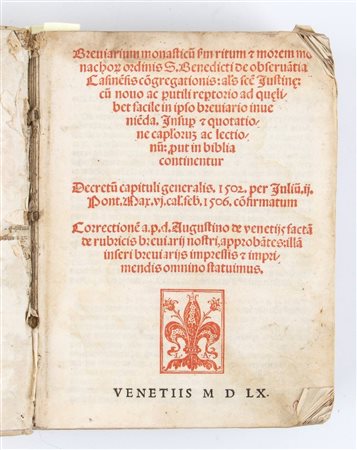 Breviarium monasticū ẜm ritum ⁊ morem mo
nachoꝝ ordinis S. Benedicti de obseruātia
Casinēsis cōgregationis: als scē Justine;
cū nouo ac putili reptorio ad quēli
bet facile in ipso breuiario inue
niēda. Insup ⁊ quotatio
ne capl'oꝝ ac lectio
nū: put in biblia
continentur
Decretū capituli generalis. 1502. per Juliū. ij.
Pont. Max. vj. cal. feb. 1506. cōfirmatum
Correctionē a. p. d. Augustino de venetijs factā
de rubricis breuiarij nostri, approbātes: illā
inseri breuiarijs impressis ⁊ impri
mendis omnino statuimus.
VENETIIS M D LX.